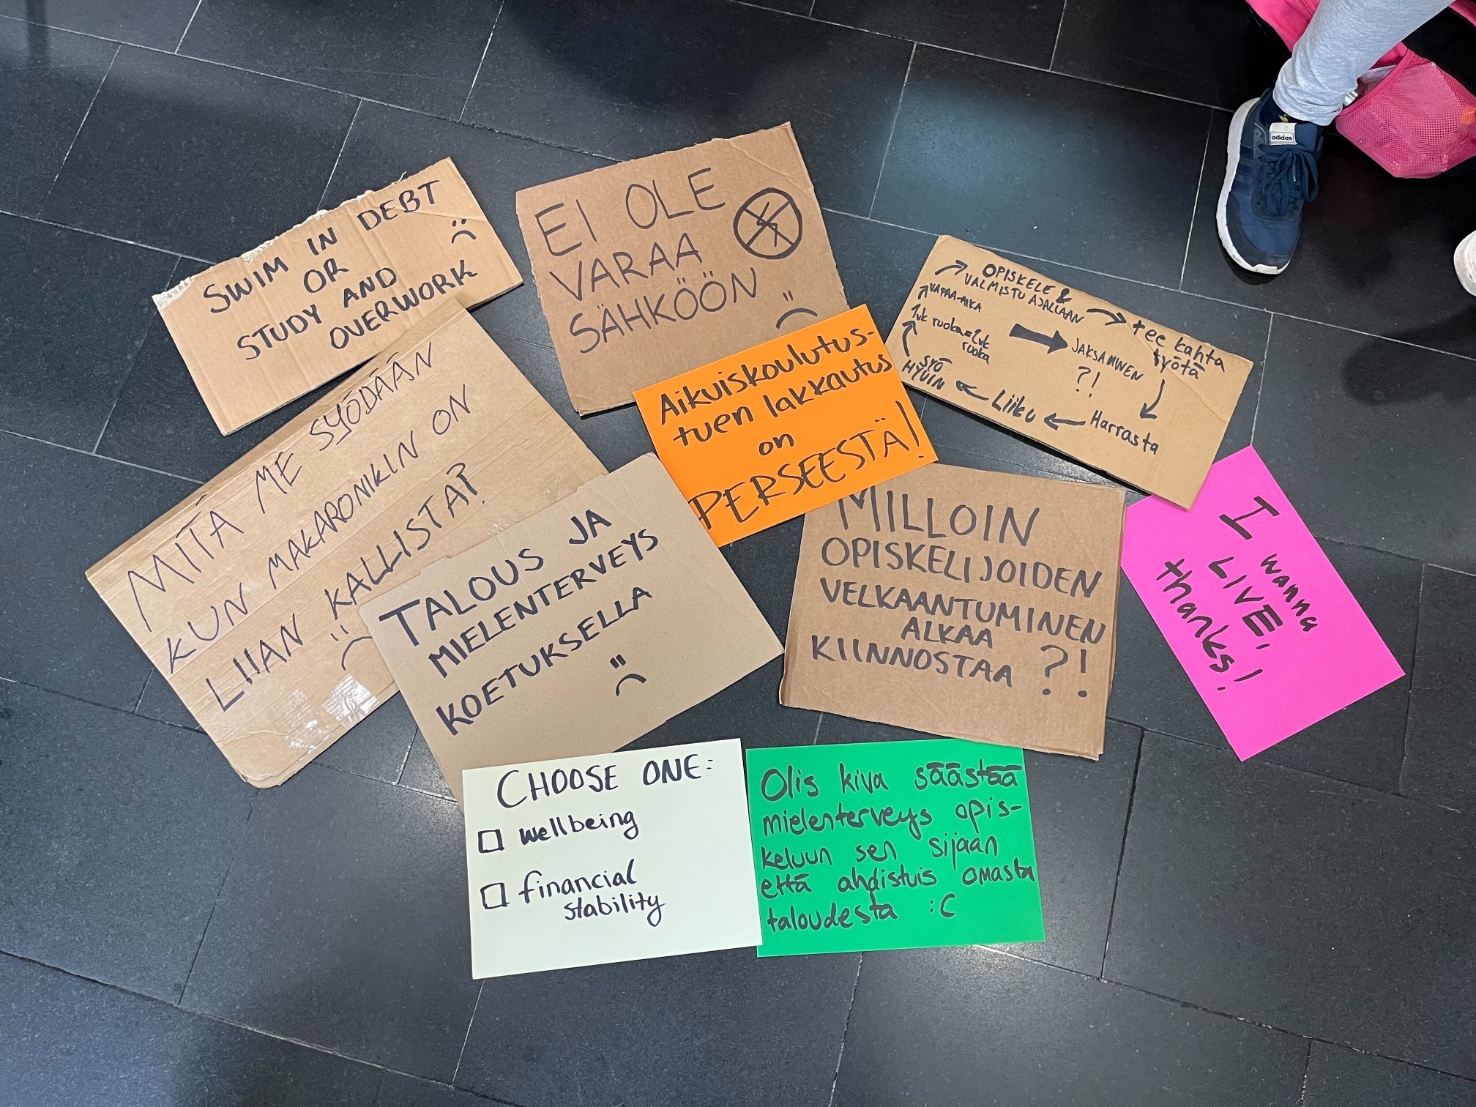 SWIM IN DEBT
OR
STUDY AND
OVERWORK
EI OLE
VARAA
SÄHKÖÖN
OPISKELE &
VALMISTU AJALLAAN
tee kahta
työtä
Harrasta
Liiku
SYÖ
HYVIN
1vk ruoka=2vk
ruoka
VAPAA-AIKA
JAKSAMINEN
?!
Aikuiskoulutus-
tuen lakkautus
on
PERSEESTÄ!
MITÄ ME SYÖDÄÄN
KUN MAKARONIKIN ON
LIIAN KALLISTA?
TALOUS JA
MIELENTERVEYS
KOETUKSELLA
MILLOIN
OPISKELIJOIDEN
VELKAANTUMINEN
ALKAA
KIINNOSTAA ?!
I wanna
LIVE,
thanks!
CHOOSE ONE:
wellbeing
financial
stability
Olis kiva säästää
mielenterveys opis-
keluun sen sijaan
että ahdistuis omasta
taloudesta :C
adidas